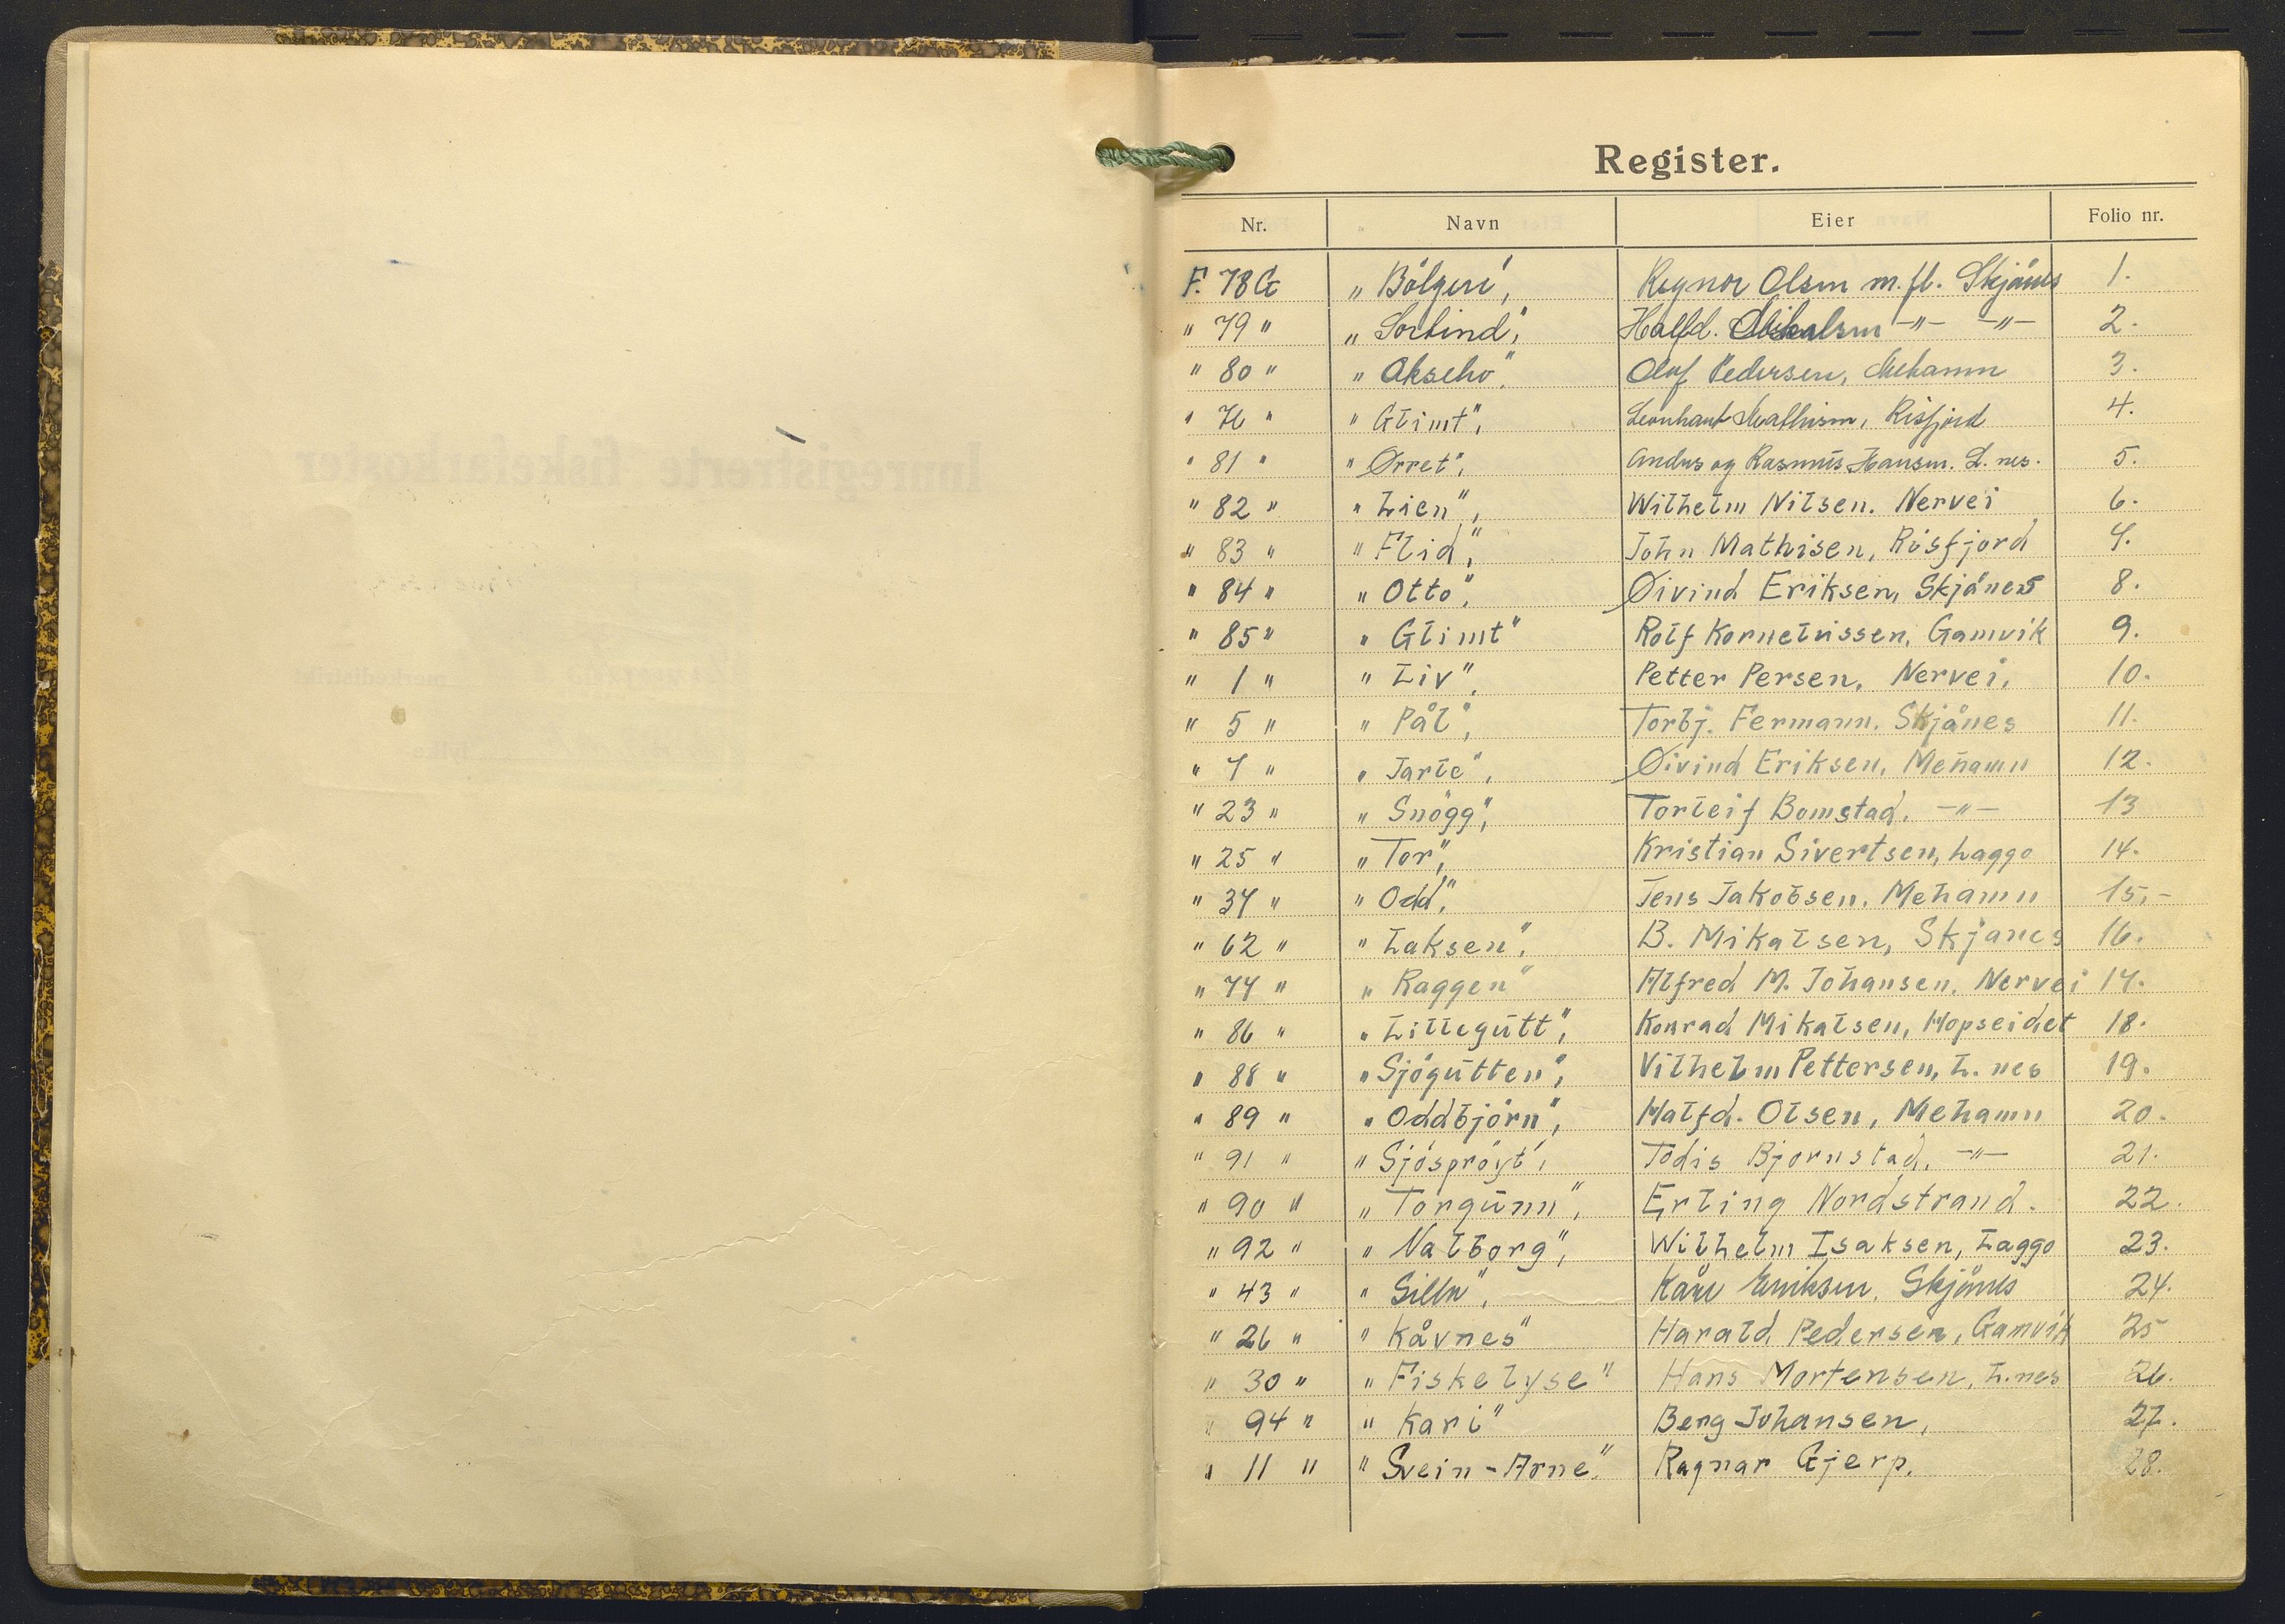 Register.
Nr. Navn Eier Folio nr.
F. 78 G „Bölgen", Ragnor Olsen m. fl. Skjånes 1.
" 79 " „Sortind", Halfd. Mikalsen -"- -"- 2.
" 80 " „Akseho". Olaf Pedersen, Mehamn 3.
" 76 " "Glimt", Leonhart Mathisen, Risfjord 4.
" 81 " "Ørret", Anders og Rasmus Hansen. L. nes. 5.
" 82 " "Lien", Wilhelm Nilsen. Nervei 6.
" 83 " "Flid", John Mathisen, Risfjord 7.
" 84 " "Otto", Øivind Eriksen, Skjånes 8.
" 85 " "Glimt" Rolf Kornelussen, Gamvik 9.
" 1 " "Liv", Petter Persen, Nervei, 10.
" 5 " "Pål", Torbj. Fermann. Skjånes 11.
" 7 " "Jarle", Øivind Eriksen, Mehamn 12.
" 23 " "Snögg", Torleif Bomstad, -"- 13
" 25 " "Tor", Kristian Sivertsen, Laggo 14.
" 37 " "Odd", Jens Jakobsen, Mehamn 15,-
" 62 " "Laksen", B. Mikalsen, Skjanes 16.
" 77 " "Raggen" Alfred M. Johansen, Nervei 17.
" 86 " "Lillegutt", Konrad Mikalsen, Hopseidet 18.
" 88 " "Sjögutten", Vilhelm Pettersen, L. nes 19.
" 89 " "Oddbjörn", Halfd. Olsen, Mehamn 20.
" 91 " "Sjöspröyt", Todis Bjornstad, -"- 21.
" 90 " "Torgunn", Erling Nordstrand. 22.
" 92 " "Valborg", Wilhelm Isaksen, Laggo 23.
" 43 " "Silla", Kåre Eriksen, Skjånes 24.
" 26 " "Kåvnes" Harald Pedersen, Gamvik 25
" 30 " "Fiskelyse" Hans Mortensen, L.nes 26.
" 94 " "Kari" Berg Johansen, 27.
" 11 " "Svein-Arne". Ragnar Gjerp. 28.